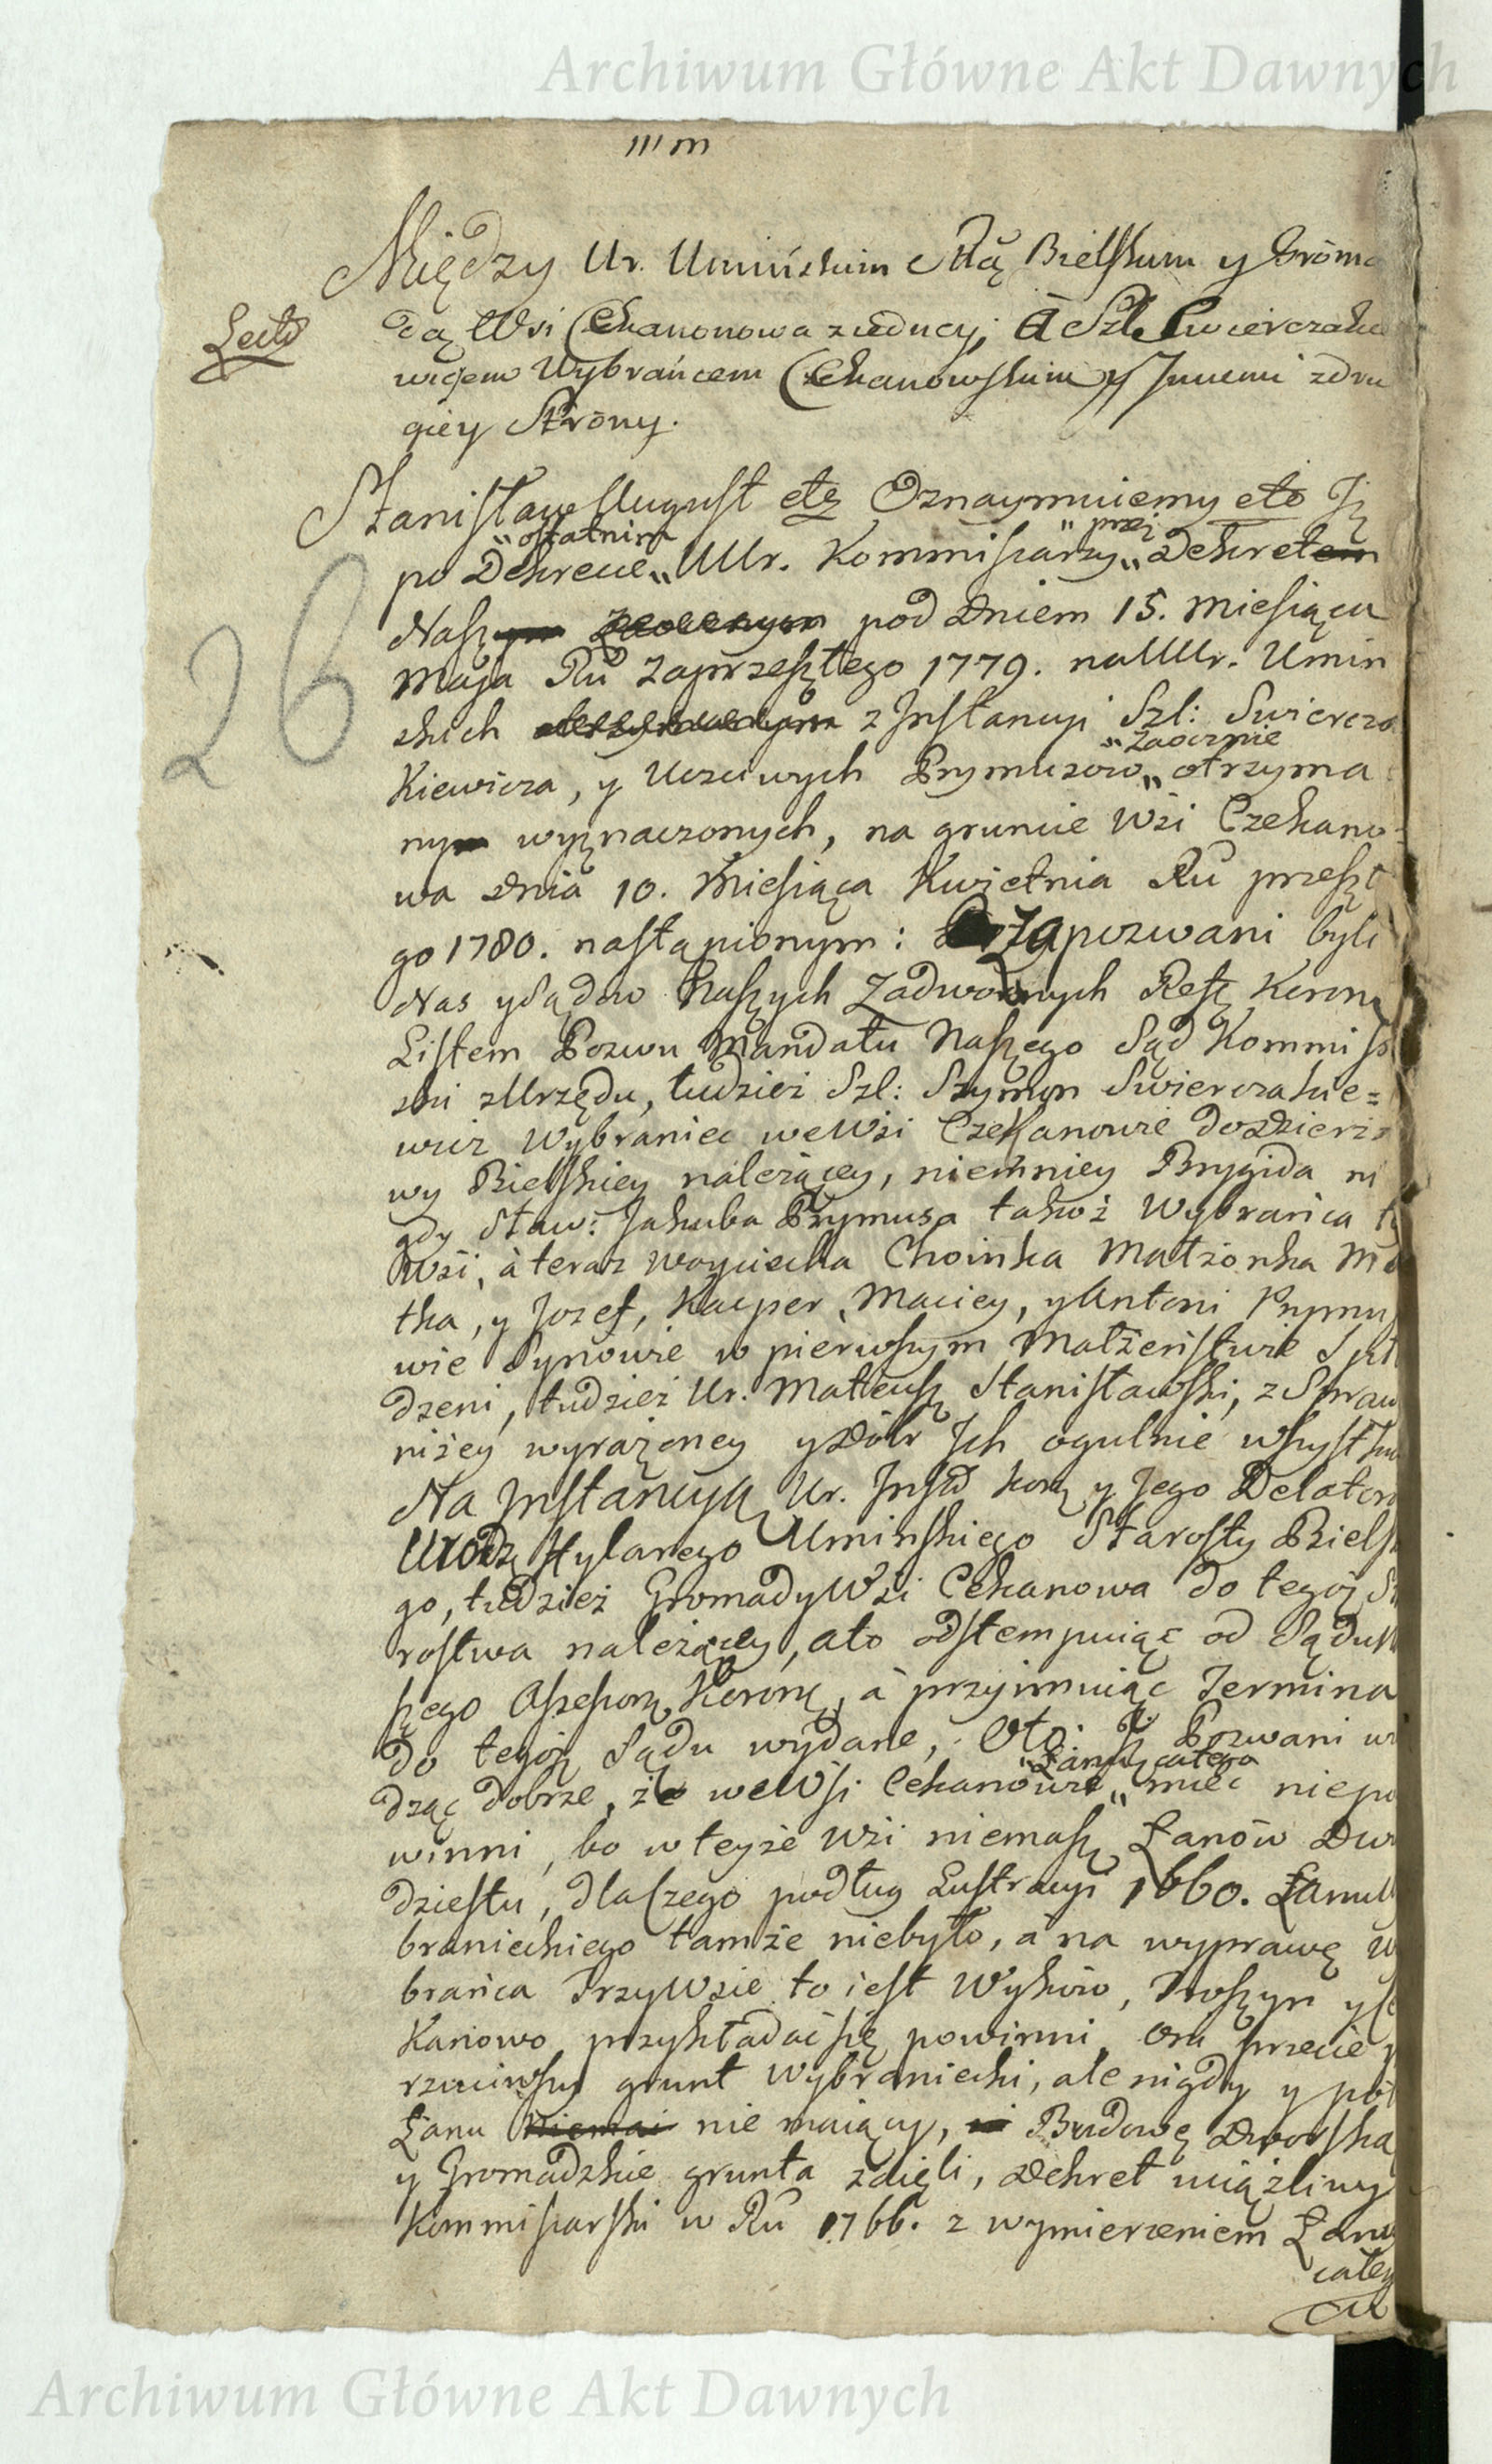 Archiwum Główne Akt Dawnych
III m
Między Ur. Uminskim Sttą Bielskim y Groma
Lecto
dą Wsi Czekanonowa z iedney, A Szl. Swierczakie
wiczem Wybrańcem Czekanowskim y Innemi z dru
giey Strony.
Stanisław August etc Oznaymuiemy etc Iż
„ostatnim „przez
po Dekrecie „ UUr. Kommissarzy „ Dekretem
Naszym pod Dniem 15. Miesiąca
26
Maja Ru Zaprzeszłego 1779. na UUr. Umin
skich z Instancyi Szl: Swiercza
„Zaocznie
Kiewicza, y Uczciwych Prymusow „ otrzyma
nym wyznaczonych, na gruncie Wsi Czekano
wa dnia 10. Miesiąca Kwietnia Ru przeszł
go 1780. nastąpionym: Zapozwani byli
Nas y Sądow Naszych Zadwornych Ressz Koronn
Listem Pozwu Mandatu Naszego Sąd Kommiss
ski z Urzędu, tudzież Szl: Szymon Swierczakie=
wicz Wybraniec we Wsi Czekanowie do Dzierża
wy Bielskiey należącey, niemniey Brygida ni
gdy Staw: Jakuba Prymusa takoż Wybrańca ty
Wsi, à teraz Woyciecha Choinka Małżonka Ma
tka, y Jozef, Kacper, Maciey, y Antoni Prymus
wie Synowie w pierwszym Małżeństwie Spł
dzeni, tudzież Ur. Mateusz Stanisławski, z Spraw
niżey wyrażoney y Dóbr Ich ogulnie wszystk
Na Instancyą Ur. Inst Kor y Jego Delator
Urodz Hylarego Uminskiego Starosty Bielsk
go, tudzież Gromady Wsi Cekanowa do tegoż St
rostwa należącey, a to odstempuiąc od Sądu N
szego Assessors Koronn, à przyimuiąc Termina
do tegoż Sądu wydane, Oto: Iż Pozwani wi
„Łanu całego
dząc dobrze, że we Wsi Cekanowie „ mieć niepo
winni, bo w teyże Wsi niemasz Łanów Dwu
dziestu, dlaczego podług Lustracyi 1660. Łanu W
branieckiego tamże niebyło, a na wyprawę W
brańca Trzy Wsie to iest Wykowo, Troszyn y C
Kanowo przykładać się powinni, oni przecie p
rzuciwszy grunt Wybraniecki, ale nigdy y pół
Łanu Niemai nie maiący, Budowę Dworską
y Gromadzkie grunta zaięli, Dekret uciążliwy
Kommissarski w Ru 1766. z wymierzeniem Łanu
całeg
Archiwum Główne Akt Dawnych